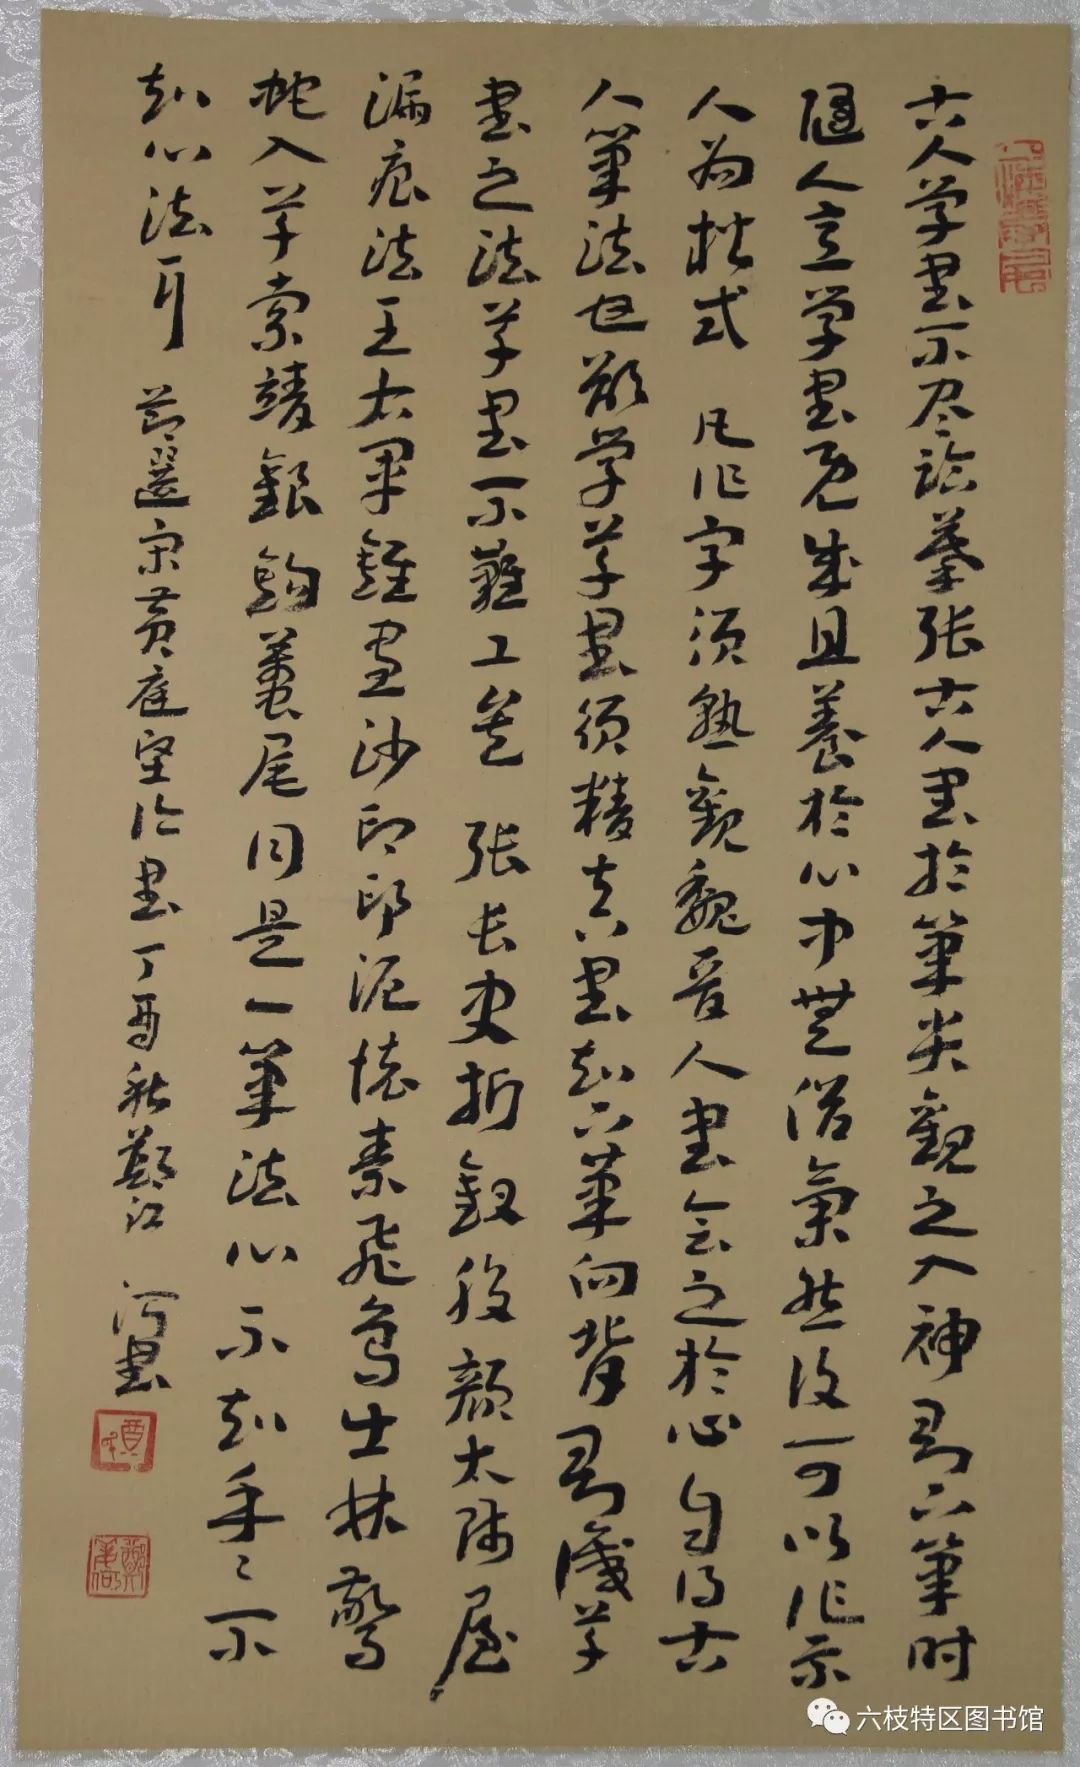 古人学书不尽临摹张古人书於笔尖观之入神则下笔时
随人意学书既成且养於心中無俗氣然後可以作示
人为楷式 凡作字须熟觀魏晋人书会之於心自得古
人笔法也欲学草书须精真书知下笔向背则識草
书之法草书不難工矣 张长史折钗股颜太师屋
漏痕法王右军錐画沙印印泥懷素飞鸟出林驚
蛇入草索靖銀钩蠆尾同是一笔法心不知手手不
知心法耳 节選宋黄庭坚论书丁酉秋鄭江 河书
六枝特区图书馆